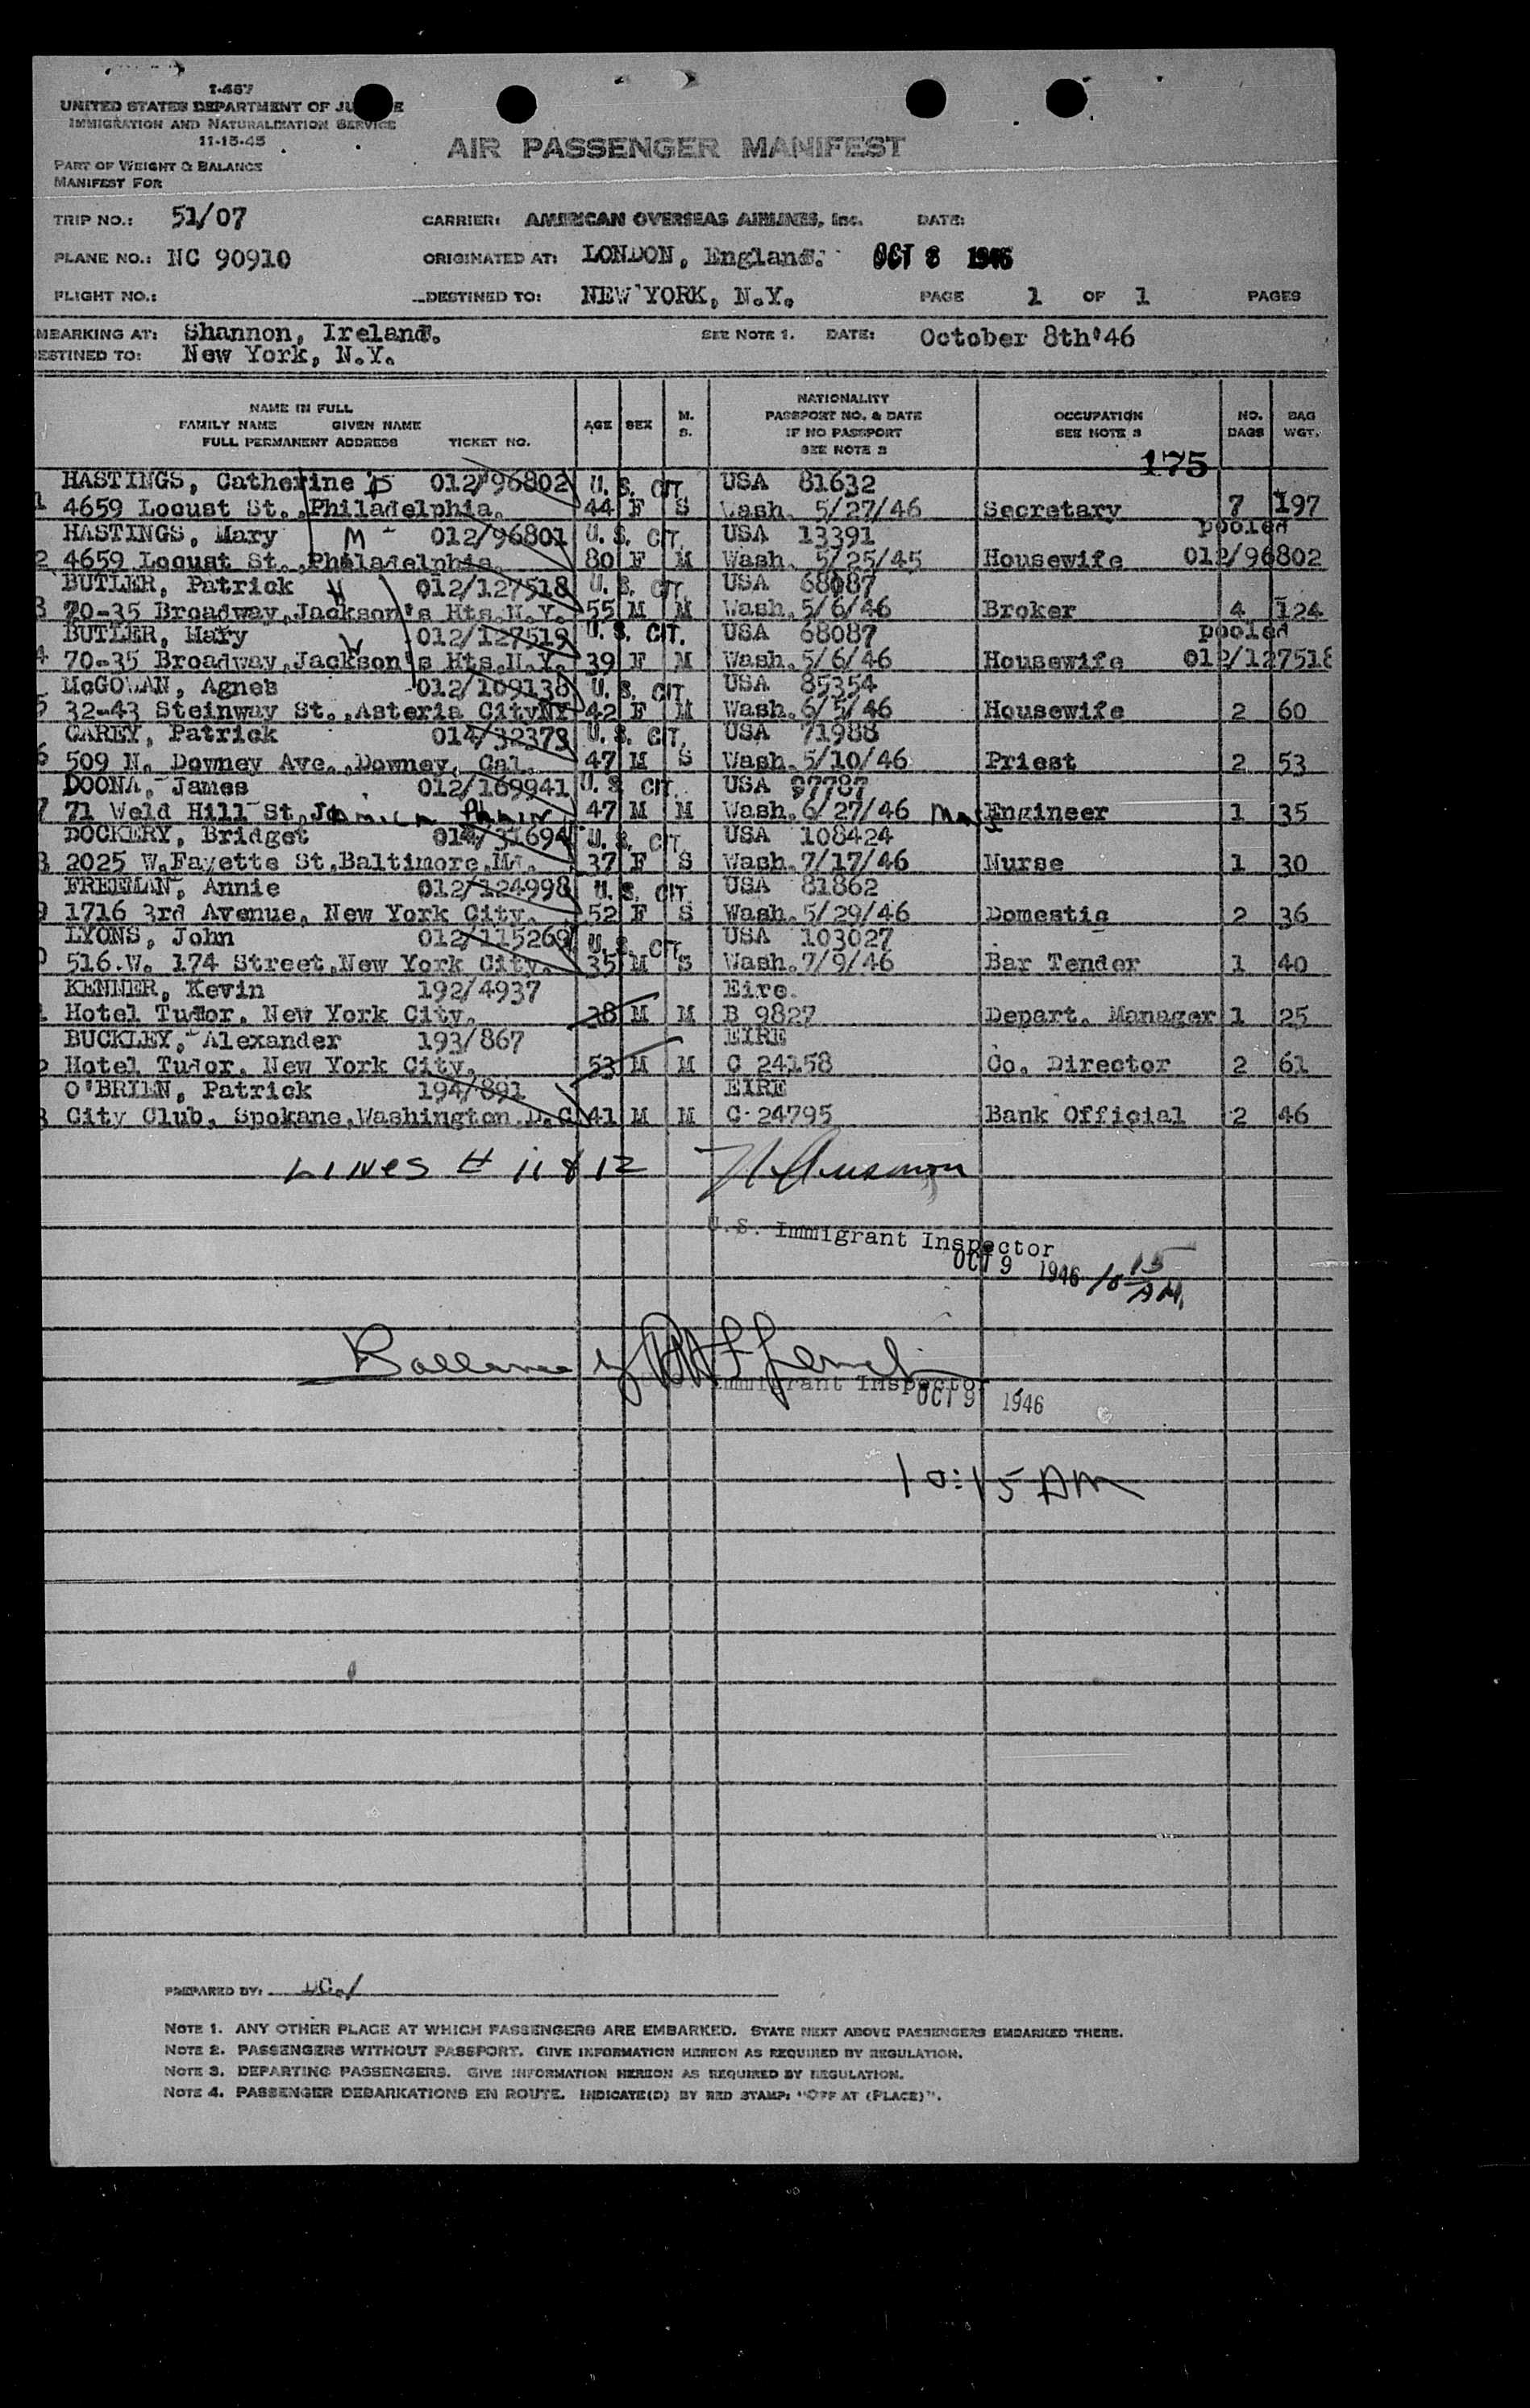 I-467
UNITED STATES DEPARTMENT OF JUSTICE
IMMIGRATION AND NATURALIZATION SERVICE
11-15-45
AIR PASSENGER MANIFEST
PART OF WEIGHT & BALANCE
MANIFEST FOR
TRIP NO.: 51/07 CARRIER: AMERICAN OVERSEAS AIRLINES, Inc. DATE:
PLANE NO.: NC 90910 ORIGINATED AT: LONDON, England. OCT 8 1946
FLIGHT NO.: DESTINED TO: NEW YORK, N.Y. PAGE 1 OF 1 PAGES
EMBARKING AT: Shannon, Ireland. SEE NOTE 1. DATE: October 8th'46
DESTINED TO: New York, N.Y.
NAME IN FULL
FAMILY NAME GIVEN NAME
FULL PERMANENT ADDRESS TICKET NO.
AGE SEX M. S.
NATIONALITY
PASSPORT NO. & DATE
IF NO PASSPORT
SEE NOTE 2
OCCUPATION
SEE NOTE 3
NO. BAGS
BAG WGT.
175
HASTINGS, Catherine D 012/96802 U. S. CIT. USA 81632
1 4659 Locust St., Philadelphia. 44 F S Wash. 5/27/46 Secretary 7 197
HASTINGS, Mary M - 012/96801 U. S. CIT. USA 13391 pooled
2 4659 Locust St., Philadelphia. 80 F M Wash. 5/25/45 Housewife 012/96802
BUTLER, Patrick H 012/127518 U. S. CIT. USA 68087
3 70-35 Broadway,Jackson's Hts.N.Y. 55 M M Wash.5/6/46 Broker 4 124
BUTLER, Mary W 012/127519 U. S. CIT. USA 68087 pooled
4 70-35 Broadway,Jackson's Hts.N.Y. 39 F M Wash.5/6/46 Housewife 012/127518
McGOWAN, Agnes 012/109138 U. S. CIT. USA 85354
5 32-43 Steinway St.,Asteria CityNY 42 F M Wash.6/5/46 Housewife 2 60
CAREY, Patrick 014/32373 U. S. CIT. USA 71988
6 509 N. Downey Ave.,Downey, Cal. 47 M S Wash.5/10/46 Priest 2 53
DOONA, James 012/169941 U. S. CIT. USA 97787
7 71 Weld Hill St,Jamaica Plain 47 M M Wash.6/27/46 Mass Engineer 1 35
DOCKERY, Bridget 014/31694 U. S. CIT. USA 108424
8 2025 W.Fayette St,Baltimore,Md. 37 F S Wash.7/17/46 Nurse 1 30
FREEMAN, Annie 012/124998 U. S. CIT. USA 81862
9 1716 3rd Avenue, New York City. 52 F S Wash.5/29/46 Domestic 2 36
LYONS, John 012/115269 U. S. CIT. USA 103027
0 516.W. 174 Street,New York City. 35 M S Wash.7/9/46 Bar Tender 1 40
KENNER, Kevin 192/4937 Eire.
1 Hotel Tudor, New York City. 38 M M B 9827 Depart. Manager 1 25
BUCKLEY, Alexander 193/867 EIRE
2 Hotel Tudor, New York City. 53 M M C 24158 Co. Director 2 61
O'BRIEN, Patrick 194/891 EIRE
3 City Club, Spokane,Washington.D.C. 41 M M C 24795 Bank Official 2 46
LINES # 11 & 12
U.S. Immigrant Inspector
OCT 9 1946 10 15 AM.
Ballance by
U.S. Immigrant Inspector
OCT 9 1946
10:15 AM
PREPARED BY: DC./
NOTE 1. ANY OTHER PLACE AT WHICH PASSENGERS ARE EMBARKED. STATE NEXT ABOVE PASSENGERS EMBARKED THERE.
NOTE 2. PASSENGERS WITHOUT PASSPORT. GIVE INFORMATION HEREON AS REQUIRED BY REGULATION.
NOTE 3. DEPARTING PASSENGERS. GIVE INFORMATION HEREON AS REQUIRED BY REGULATION.
NOTE 4. PASSENGER DEBARKATIONS EN ROUTE. INDICATE(D) BY RED STAMP: "OFF AT (PLACE)".